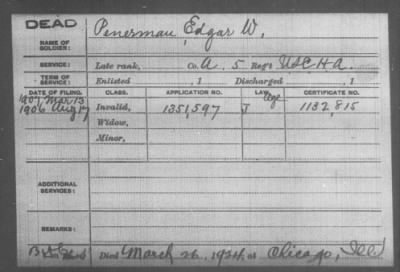 DEAD
NAME OF SOLDIER: Penerman, Edgar W.
SERVICE: Late rank, Co. A, 5 Reg't U S C H A.
TERM OF SERVICE: Enlisted , 1 Discharged , 1
DATE OF FILING. CLASS. APPLICATION NO. LAW. CERTIFICATE NO.
1907 Mar 13 Age
1906 Aug 17 Invalid, 1351,597 J 1132,815
Widow,
Minor,
ADDITIONAL SERVICES:
REMARKS:
Died March 26, 1924, at Chicago, Ill